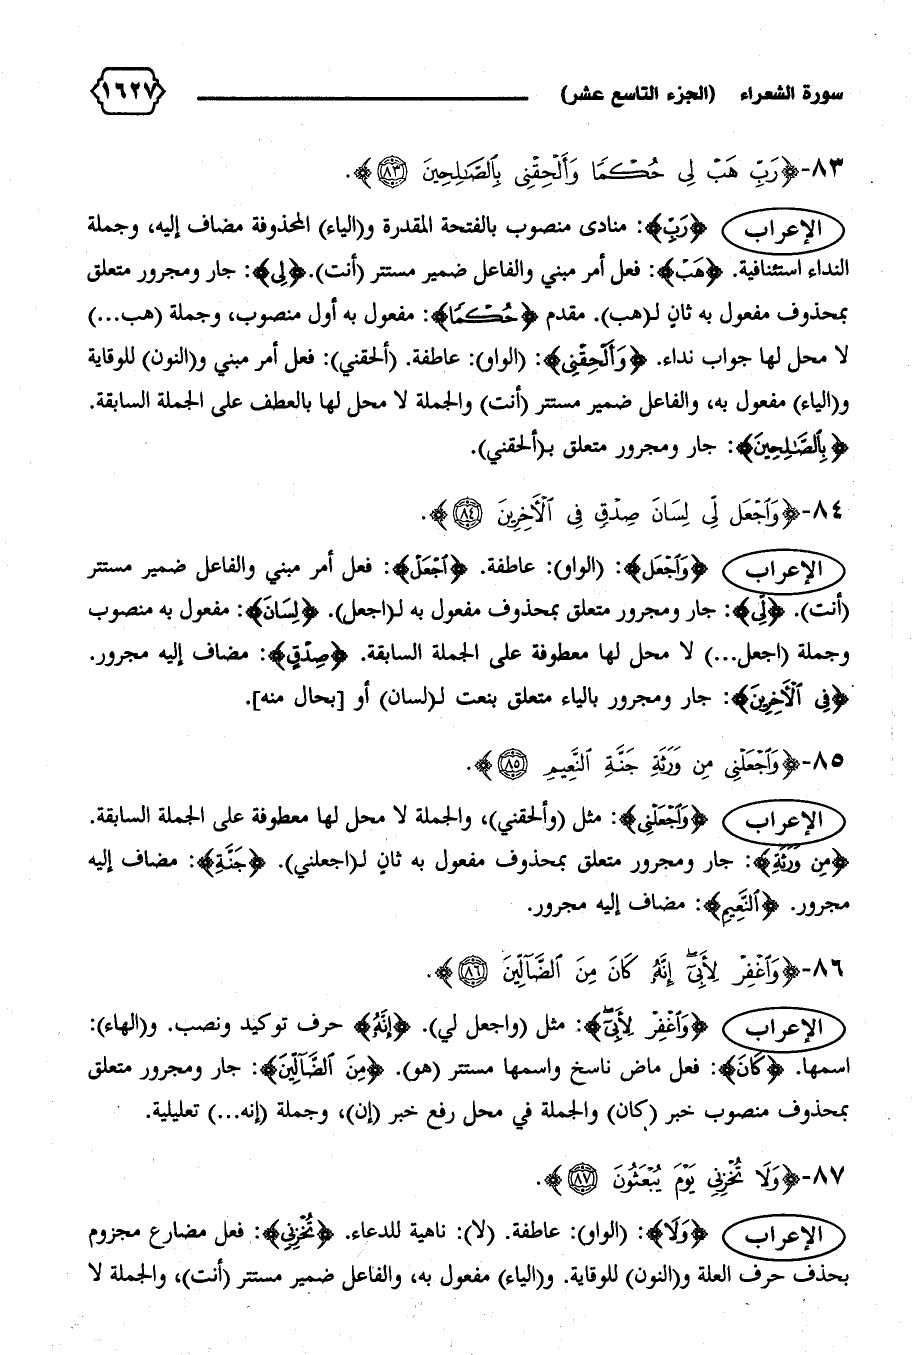 سورة الشعراء (الجزء التاسع عشر) ١٦٢٧
٨٣-﴿رَبِّ هَبْ لِى حُكْمًا وَأَلْحِقْنِى بِٱلصَّٰلِحِينَ ۝٨٣﴾.
الإعراب ﴿رَبِّ﴾: منادى منصوب بالفتحة المقدرة و(الياء) المحذوفة مضاف إليه، وجملة
النداء استئنافية. ﴿هَبْ﴾: فعل أمر مبني والفاعل ضمير مستتر (أنت).﴿لِى﴾: جار ومجرور متعلق
بمحذوف مفعول به ثانٍ لـ(هب). مقدم ﴿حُكْمًا﴾: مفعول به أول منصوب، وجملة (هب...)
لا محل لها جواب نداء. ﴿وَأَلْحِقْنِى﴾: (الواو): عاطفة. (ألحقني): فعل أمر مبني و(النون) للوقاية
و(الياء) مفعول به، والفاعل ضمير مستتر (أنت) والجملة لا محل لها بالعطف على الجملة السابقة.
﴿بِٱلصَّٰلِحِينَ﴾: جار ومجرور متعلق بـ(ألحقني).
٨٤-﴿وَٱجْعَل لِّى لِسَانَ صِدْقٍ فِى ٱلْأَخِرِينَ ۝٨٤﴾.
الإعراب ﴿وَٱجْعَل﴾: (الواو): عاطفة. ﴿ٱجْعَلْ﴾: فعل أمر مبني والفاعل ضمير مستتر
(أنت). ﴿لِّى﴾: جار ومجرور متعلق بمحذوف مفعول به لـ(اجعل). ﴿لِسَانَ﴾: مفعول به منصوب
وجملة (اجعل...) لا محل لها معطوفة على الجملة السابقة. ﴿صِدْقٍ﴾: مضاف إليه مجرور.
﴿فِى ٱلْأَخِرِينَ﴾: جار ومجرور بالياء متعلق بنعت لـ(لسان) أو [بحال منه].
٨٥-﴿وَٱجْعَلْنِى مِن وَرَثَةِ جَنَّةِ ٱلنَّعِيمِ ۝٨٥﴾.
الإعراب ﴿وَٱجْعَلْنِى﴾: مثل (وألحقني)، والجملة لا محل لها معطوفة على الجملة السابقة.
﴿مِن وَرَثَةِ﴾: جار ومجرور متعلق بمحذوف مفعول به ثانٍ لـ(اجعلني). ﴿جَنَّةِ﴾: مضاف إليه
مجرور. ﴿ٱلنَّعِيمِ﴾: مضاف إليه مجرور.
٨٦-﴿وَٱغْفِرْ لِأَبِىٓ ۖ إِنَّهُۥ كَانَ مِنَ ٱلضَّآلِّينَ ۝٨٦﴾.
الإعراب ﴿وَٱغْفِرْ لِأَبِىٓ ۖ﴾: مثل (واجعل لي). ﴿إِنَّهُۥ﴾ حرف توكيد ونصب. و(الهاء):
اسمها. ﴿كَانَ﴾: فعل ماض ناسخ واسمها مستتر (هو). ﴿مِنَ ٱلضَّآلِّينَ﴾: جار ومجرور متعلق
بمحذوف منصوب خبر (كان) والجملة في محل رفع خبر (إن)، وجملة (إنه...) تعليلية.
٨٧-﴿وَلَا تُخْزِنِى يَوْمَ يُبْعَثُونَ ۝٨٧﴾.
الإعراب ﴿وَلَا﴾: (الواو): عاطفة. (لا): ناهية للدعاء. ﴿تُخْزِنِى﴾: فعل مضارع مجزوم
بحذف حرف العلة و(النون) للوقاية. و(الياء) مفعول به، والفاعل ضمير مستتر (أنت)، والجملة لا